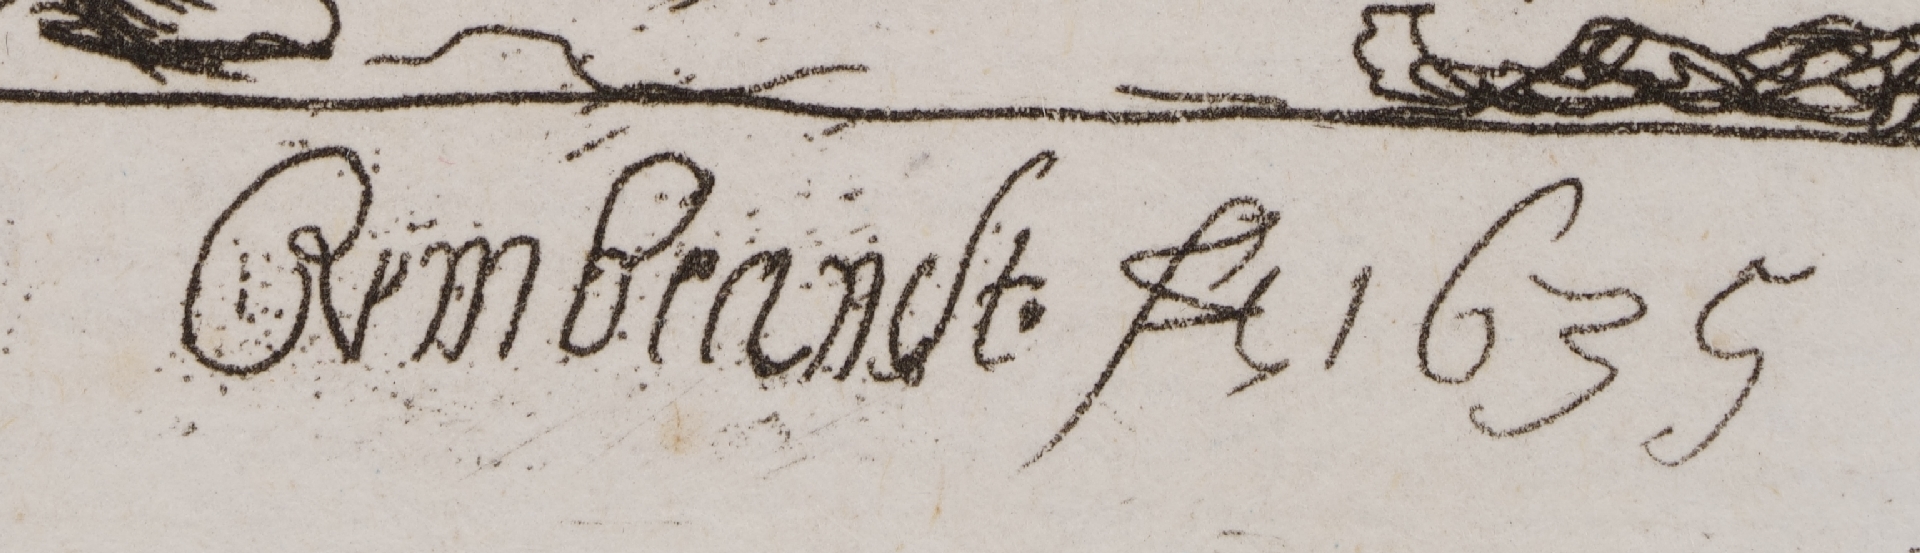 Rembrandt. fe 1635